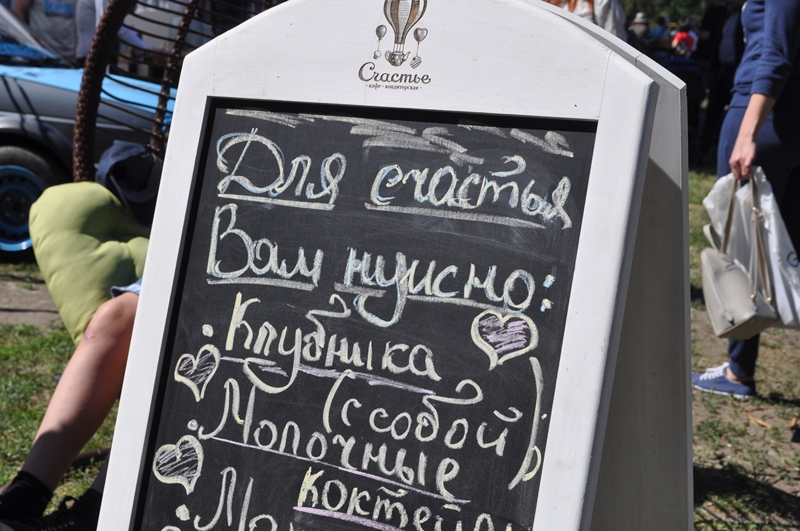 Счастье
кафе-кондитерская
Для счастья
Вам нужно:
• Клубника
(с собой)
• Молочные
коктейли